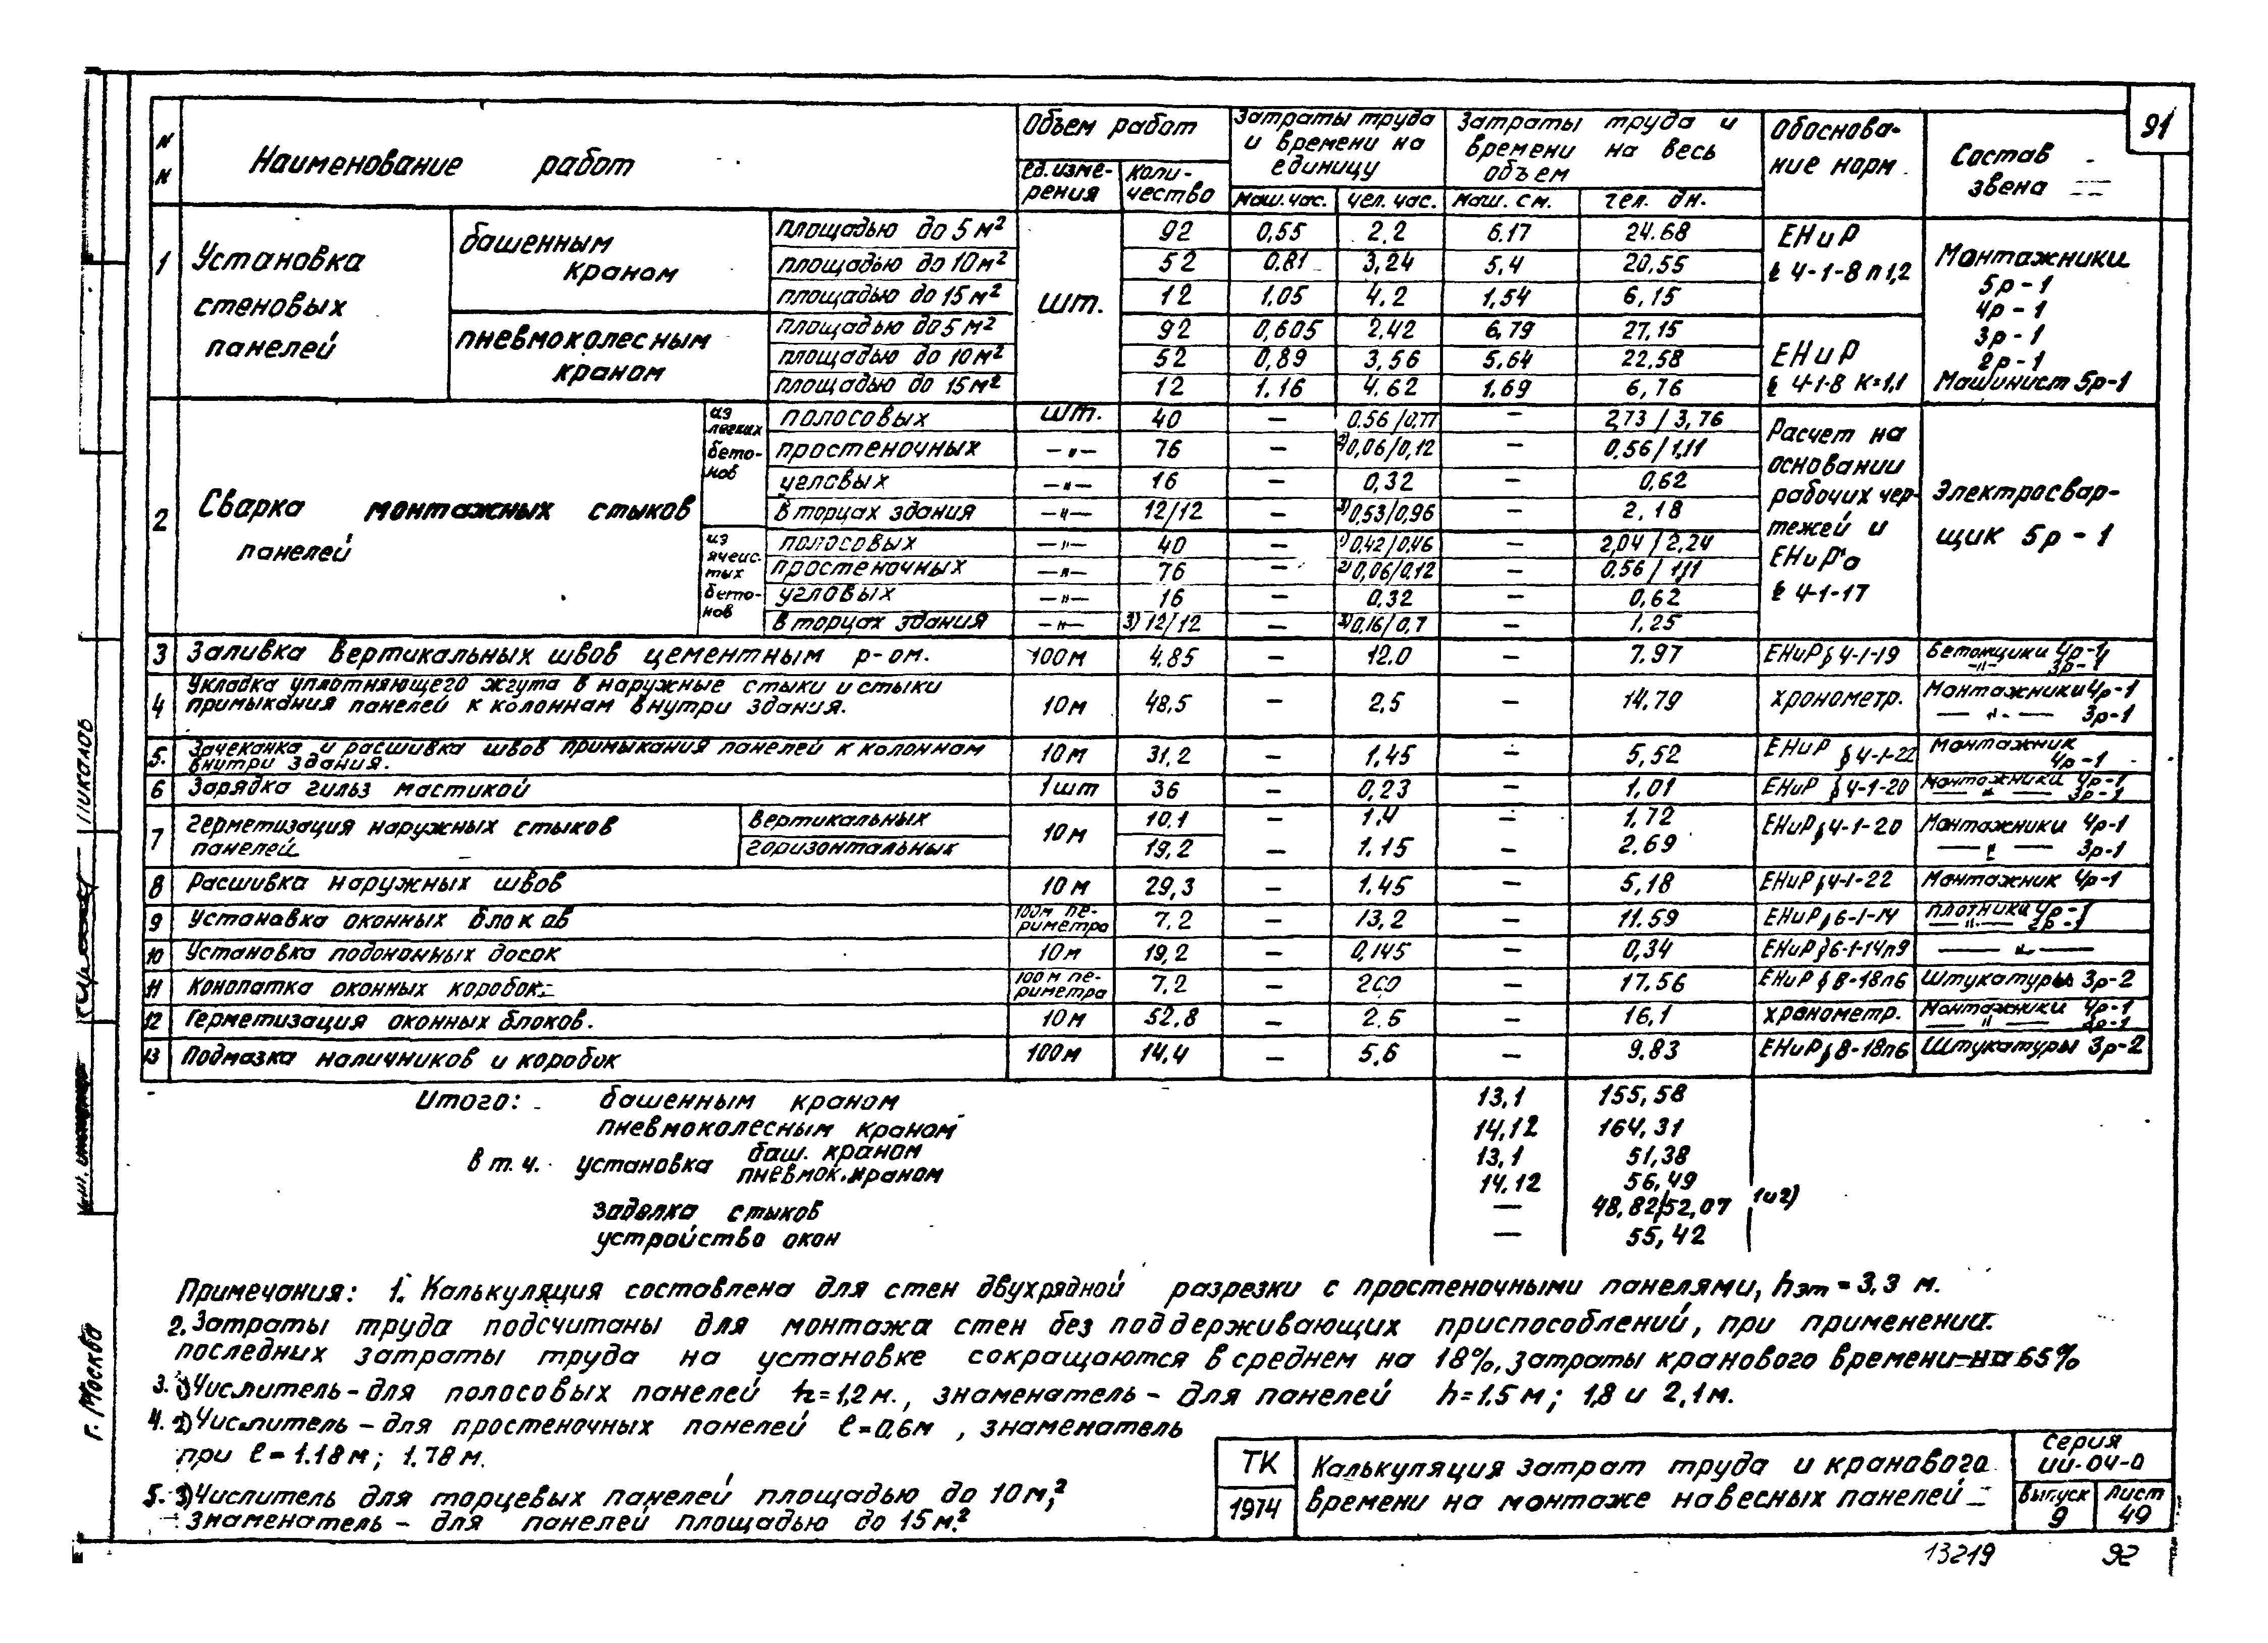 91
N N Наименование работ Объем работ Затраты труда и времени на единицу Затраты труда и времени на весь объем Обоснова-ние норм Состав звена
ед. изме-рения коли-чество маш. час. чел. час. маш. см. чел. дн.
1 Установка стеновых панелей башенным краном площадью до 5 м² шт. 92 0,55 2.2 6.17 24.68 ЕНиР § 4-1-8 п1,2 Монтажники 5р-1 4р-1 3р-1 2р-1 Машинист 5р-1
площадью до 10 м² 52 0.81 3,24 5,4 20,55
площадью до 15 м² 12 1,05 4.2 1,54 6,15
пневмоколесным краном площадью до 5 м² 92 0,605 2,42 6,79 27,15 ЕНиР § 4-1-8 К=1,1
площадью до 10 м² 52 0,89 3,56 5,64 22,58
площадью до 15 м² 12 1.16 4,62 1,69 6,76
2 Сварка монтажных стыков панелей из легких бето-нов полосовых шт. 40 — 0.56/0,77 — 2,73/3,76 Расчет на основании рабочих чер-тежей и ЕНиР'а § 4-1-17 Электросвар-щик 5р-1
простеночных —"— 76 — 2)0,06/0,12 — 0.56/1,11
угловых —"— 16 — 0,32 — 0,62
в торцах здания —"— 12/12 — 3)0,53/0,96 — 2,18
из ячеис-тых бето-нов полосовых —"— 40 — 1)0,42/0,46 — 2,04/2,24
простеночных —"— 76 — 2)0,06/0,12 — 0.56/1,11
угловых —"— 16 — 0,32 — 0,62
в торцах здания —"— 3)12/12 — 3)0,16/0,7 — 1,25
3 Заливка вертикальных швов цементным р-ом. 100м 4.85 — 12.0 — 7.97 ЕНиР § 4-1-19 Бетонщики 4р-1 —"— 3р-1
4 Укладка уплотняющего жгута в наружные стыки и стыки
примыкания панелей к колоннам внутри здания. 10м 48,5 — 2,5 — 14.79 хронометр. Монтажники 4р-1 —"— 3р-1
5. Зачеканка и расшивка швов примыкания панелей к колоннам
внутри здания. 10м 31,2 — 1,45 — 5,52 ЕНиР § 4-1-22 Монтажник 4р-1
6 Зарядка гильз мастикой 1шт 36 — 0,23 — 1,01 ЕНиР § 4-1-20 Монтажники 4р-1 —"— 3р-1
7 Герметизация наружных стыков панелей вертикальных 10м 10.1 — 1,4 — 1,72 ЕНиР § 4-1-20 Монтажники 4р-1 —"— 3р-1
горизонтальных 19,2 — 1.15 — 2.69
8 Расшивка наружных швов 10м 29,3 — 1.45 — 5,18 ЕНиР § 4-1-22 Монтажник 4р-1
9 Установка оконных блоков 100м пе-риметра 7.2 — 13,2 — 11.59 ЕНиР § 6-1-14 Плотники 4р-1 —"— 2р-1
10 Установка подоконных досок 10м 19,2 — 0,145 — 0,34 ЕНиР § 6-1-14п9 —"—
11 Конопатка оконных коробок 100м пе-риметра 7.2 — 20,0 — 17.56 ЕНиР § 8-18п6 Штукатуры 3р-2
12 Герметизация оконных блоков. 10м 52.8 — 2.5 — 16,1 хронометр. Монтажники 4р-1
13 Подмазка наличников и коробок 100м 14.4 — 5,6 — 9.83 ЕНиР § 8-18п6 Штукатуры 3р-2
Итого: башенным краном 13,1 155,58
пневмоколесным краном 14,12 164,31
в т.ч. установка баш. краном 13,1 51,38
пневмок. краном 14.12 56,49
заделка стыков — 48,82/52,07 1и2)
устройство окон — 55,42
Примечания: 1. Калькуляция составлена для стен двухрядной разрезки с простеночными панелями, hэт = 3,3 м.
2. Затраты труда подсчитаны для монтажа стен без поддерживающих приспособлений, при применении
последних затраты труда на установке сокращаются в среднем на 18%, затраты кранового времени на 65%
3. 1) Числитель – для полосовых панелей h=1,2 м., знаменатель – для панелей h=1.5 м; 1,8 и 2,1 м.
4. 2) Числитель – для простеночных панелей ℓ=0,6м, знаменатель
при ℓ=1.18м; 1.78 м.
5. 3) Числитель для торцевых панелей площадью до 10 м²,
знаменатель – для панелей площадью до 15 м².
ТК 1974
Калькуляция затрат труда и кранового
времени на монтаже навесных панелей
Серия ИИ-04-0
Выпуск 9 Лист 49
13219 92
Шикалов
г. Москва